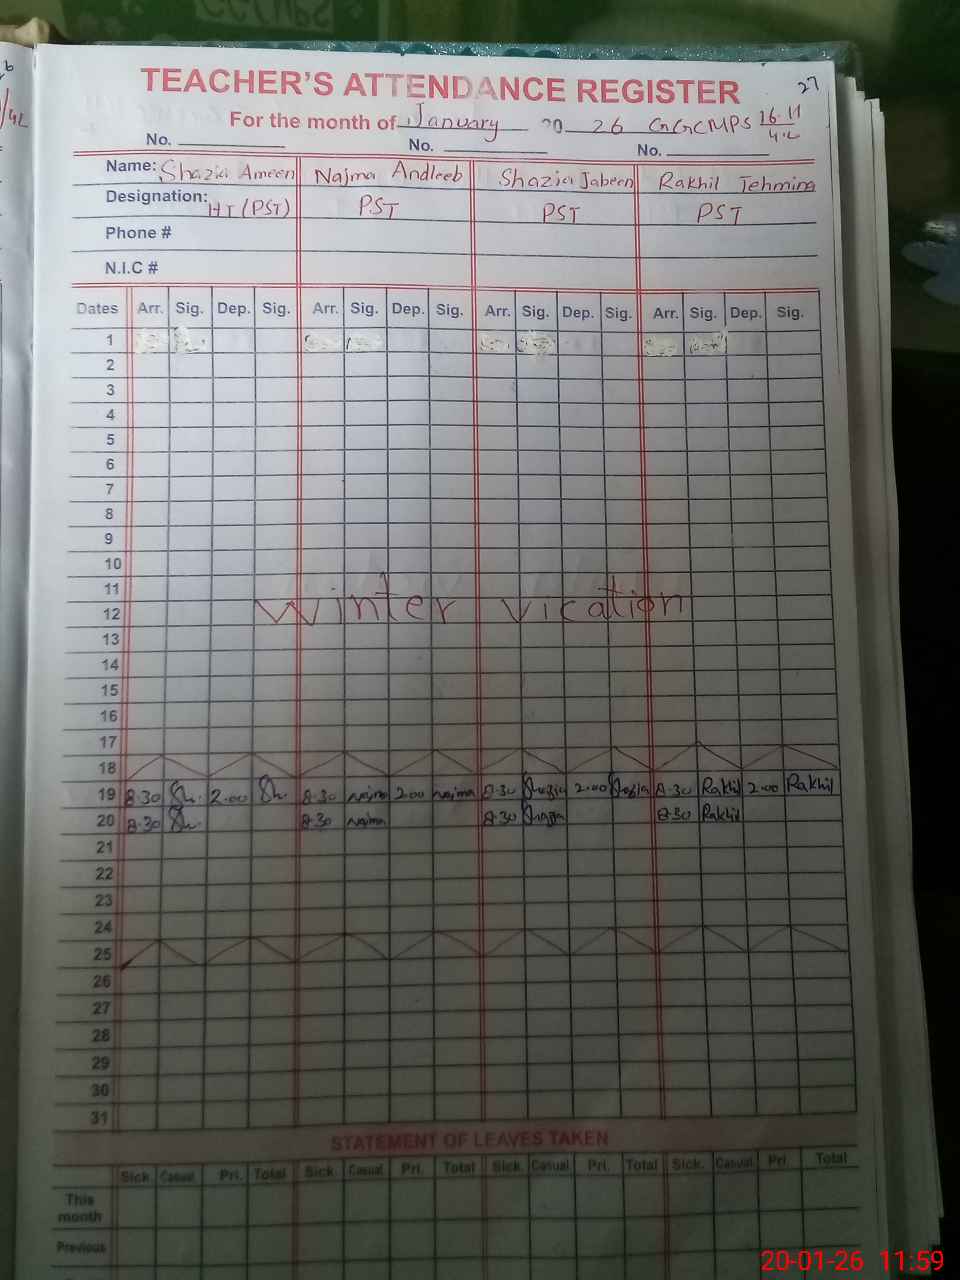 27
TEACHER'S ATTENDANCE REGISTER
For the month of January 2026 GGCMPS 16-11/4.L
No. No. No.
Name: Shazia Ameen Najma Andleeb Shazia Jabeen Rakhil Tehmina
Designation: HT (PST) PST PST PST
Phone #
N.I.C #
Dates Arr. Sig. Dep. Sig. Arr. Sig. Dep. Sig. Arr. Sig. Dep. Sig. Arr. Sig. Dep. Sig.
1
2
3
4
5
6
7
8
9
10
11
12 Winter vication
13
14
15
16
17
18
19 8.30 Sh. 2.00 Sh. 8.30 Najma 2.00 Najma 8.30 Shazia 2.00 Shazia 8.30 Rakhil 2.00 Rakhil
20 8.30 Sh. 8.30 Najma 8.30 Shazia 8.30 Rakhil
21
22
23
24
25
26
27
28
29
30
31
STATEMENT OF LEAVES TAKEN
Sick. Casual Pri. Total Sick. Casual Pri. Total Sick. Casual Pri. Total Sick. Casual Pri. Total
This
month
Previous
20-01-26 11:59